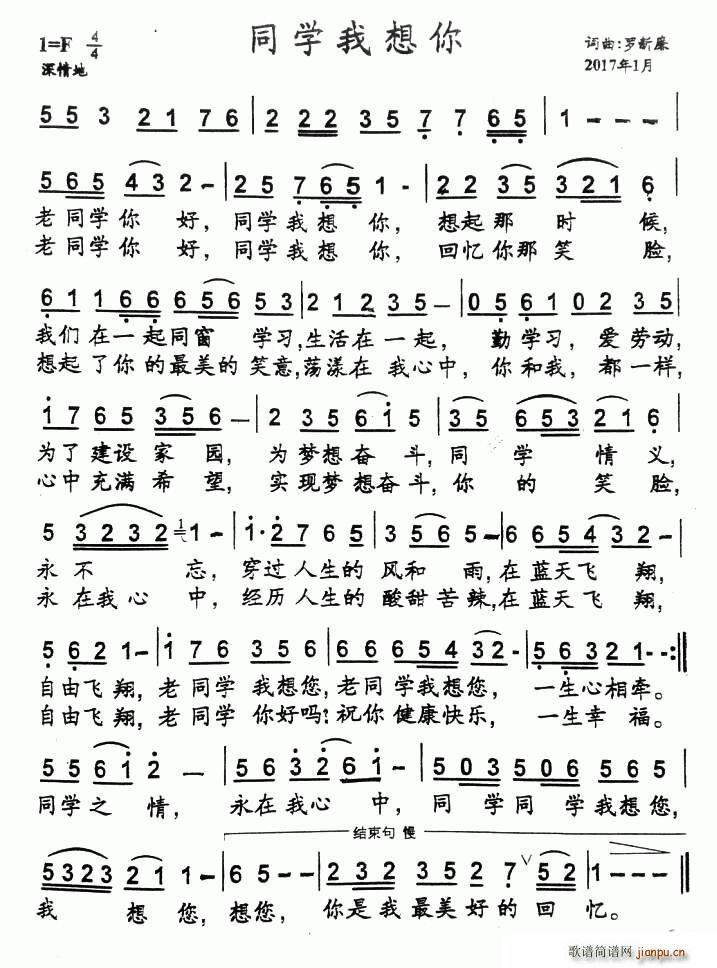 同学我想你
1=F 4/4
词曲:罗新廉
深情地
2017年1月
5 5 3 2 1 7 6 | 2 2 2 2 3 5 7 7 6 5 | 1 - - -
5 6 5 4 3 2 - | 2 5 7 6 5 1 - | 2 2 3 5 3 2 1 6
老同学你 好, 同学我想 你, 想起那 时 候,
老同学你 好, 同学我想 你, 回忆你那笑 脸,
6 1 1 6 6 6 5 6 5 3 | 2 1 2 3 5 - | 0 5 6 1 0 2 3 5
我们在一起同窗 学习,生活在一起, 勤学习, 爱劳动,
想起了你的最美的笑意,荡漾在我心中, 你和我, 都一样,
1 7 6 5 3 5 6 - | 2 3 5 6 1 5 | 3 5 6 5 3 2 1 6
为了建设家 园, 为梦想奋 斗, 同 学 情 义,
心中充满希 望, 实现梦想奋斗, 你 的 笑 脸,
5 3 2 3 2 1 - | 1· 2 7 6 5 | 3 5 6 5 - | 6 6 5 4 3 2 -
永 不 忘, 穿过人生的 风和 雨,在蓝天飞 翔,
永 在我心 中, 经历人生的 酸甜苦辣,在蓝天飞 翔,
5 6 2 1 - | 1 7 6 3 5 6 | 6 6 6 5 4 3 2 - | 5 6 3 2 1 - :‖
自由飞翔, 老同学 我想您,老同学我想您, 一生心相牵。
自由飞翔, 老同学 你好吗?祝你健康快乐, 一生幸 福。
5 5 6 1 2 - | 5 6 3 2 6 1 - | 5 0 3 5 0 6 5 0 6
同学之 情, 永在我心 中, 同 学同 学我想您,
结束句 慢
5 3 2 3 2 1 1 - | 6 5 - - | 2 2 3 2 3 5 2 7 ∨ 5 2 | 1 - - -
我 想 您, 想您, 你是我最美好的 回 忆。
歌谱简谱网
jianpu.cn